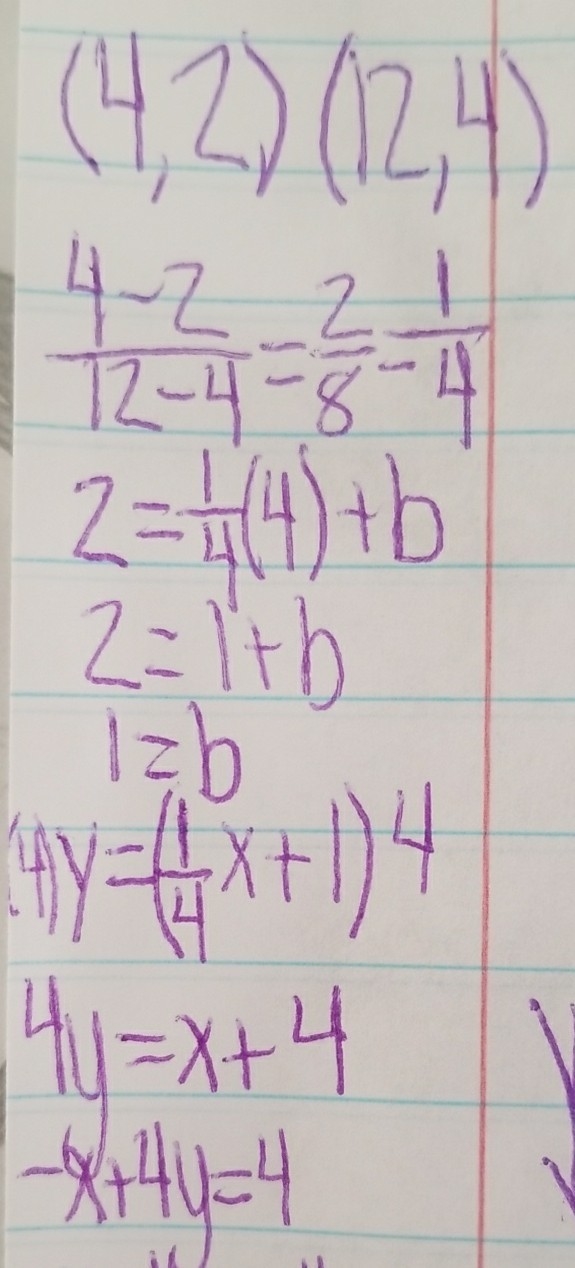 (4,2) (12,4)
4-2/12-4 = 2/8 - 1/4
2=1/4(4)+b
2=1+b
1=b
(4)y=(1/4x+1)4
4y=x+4
-x+4y=4